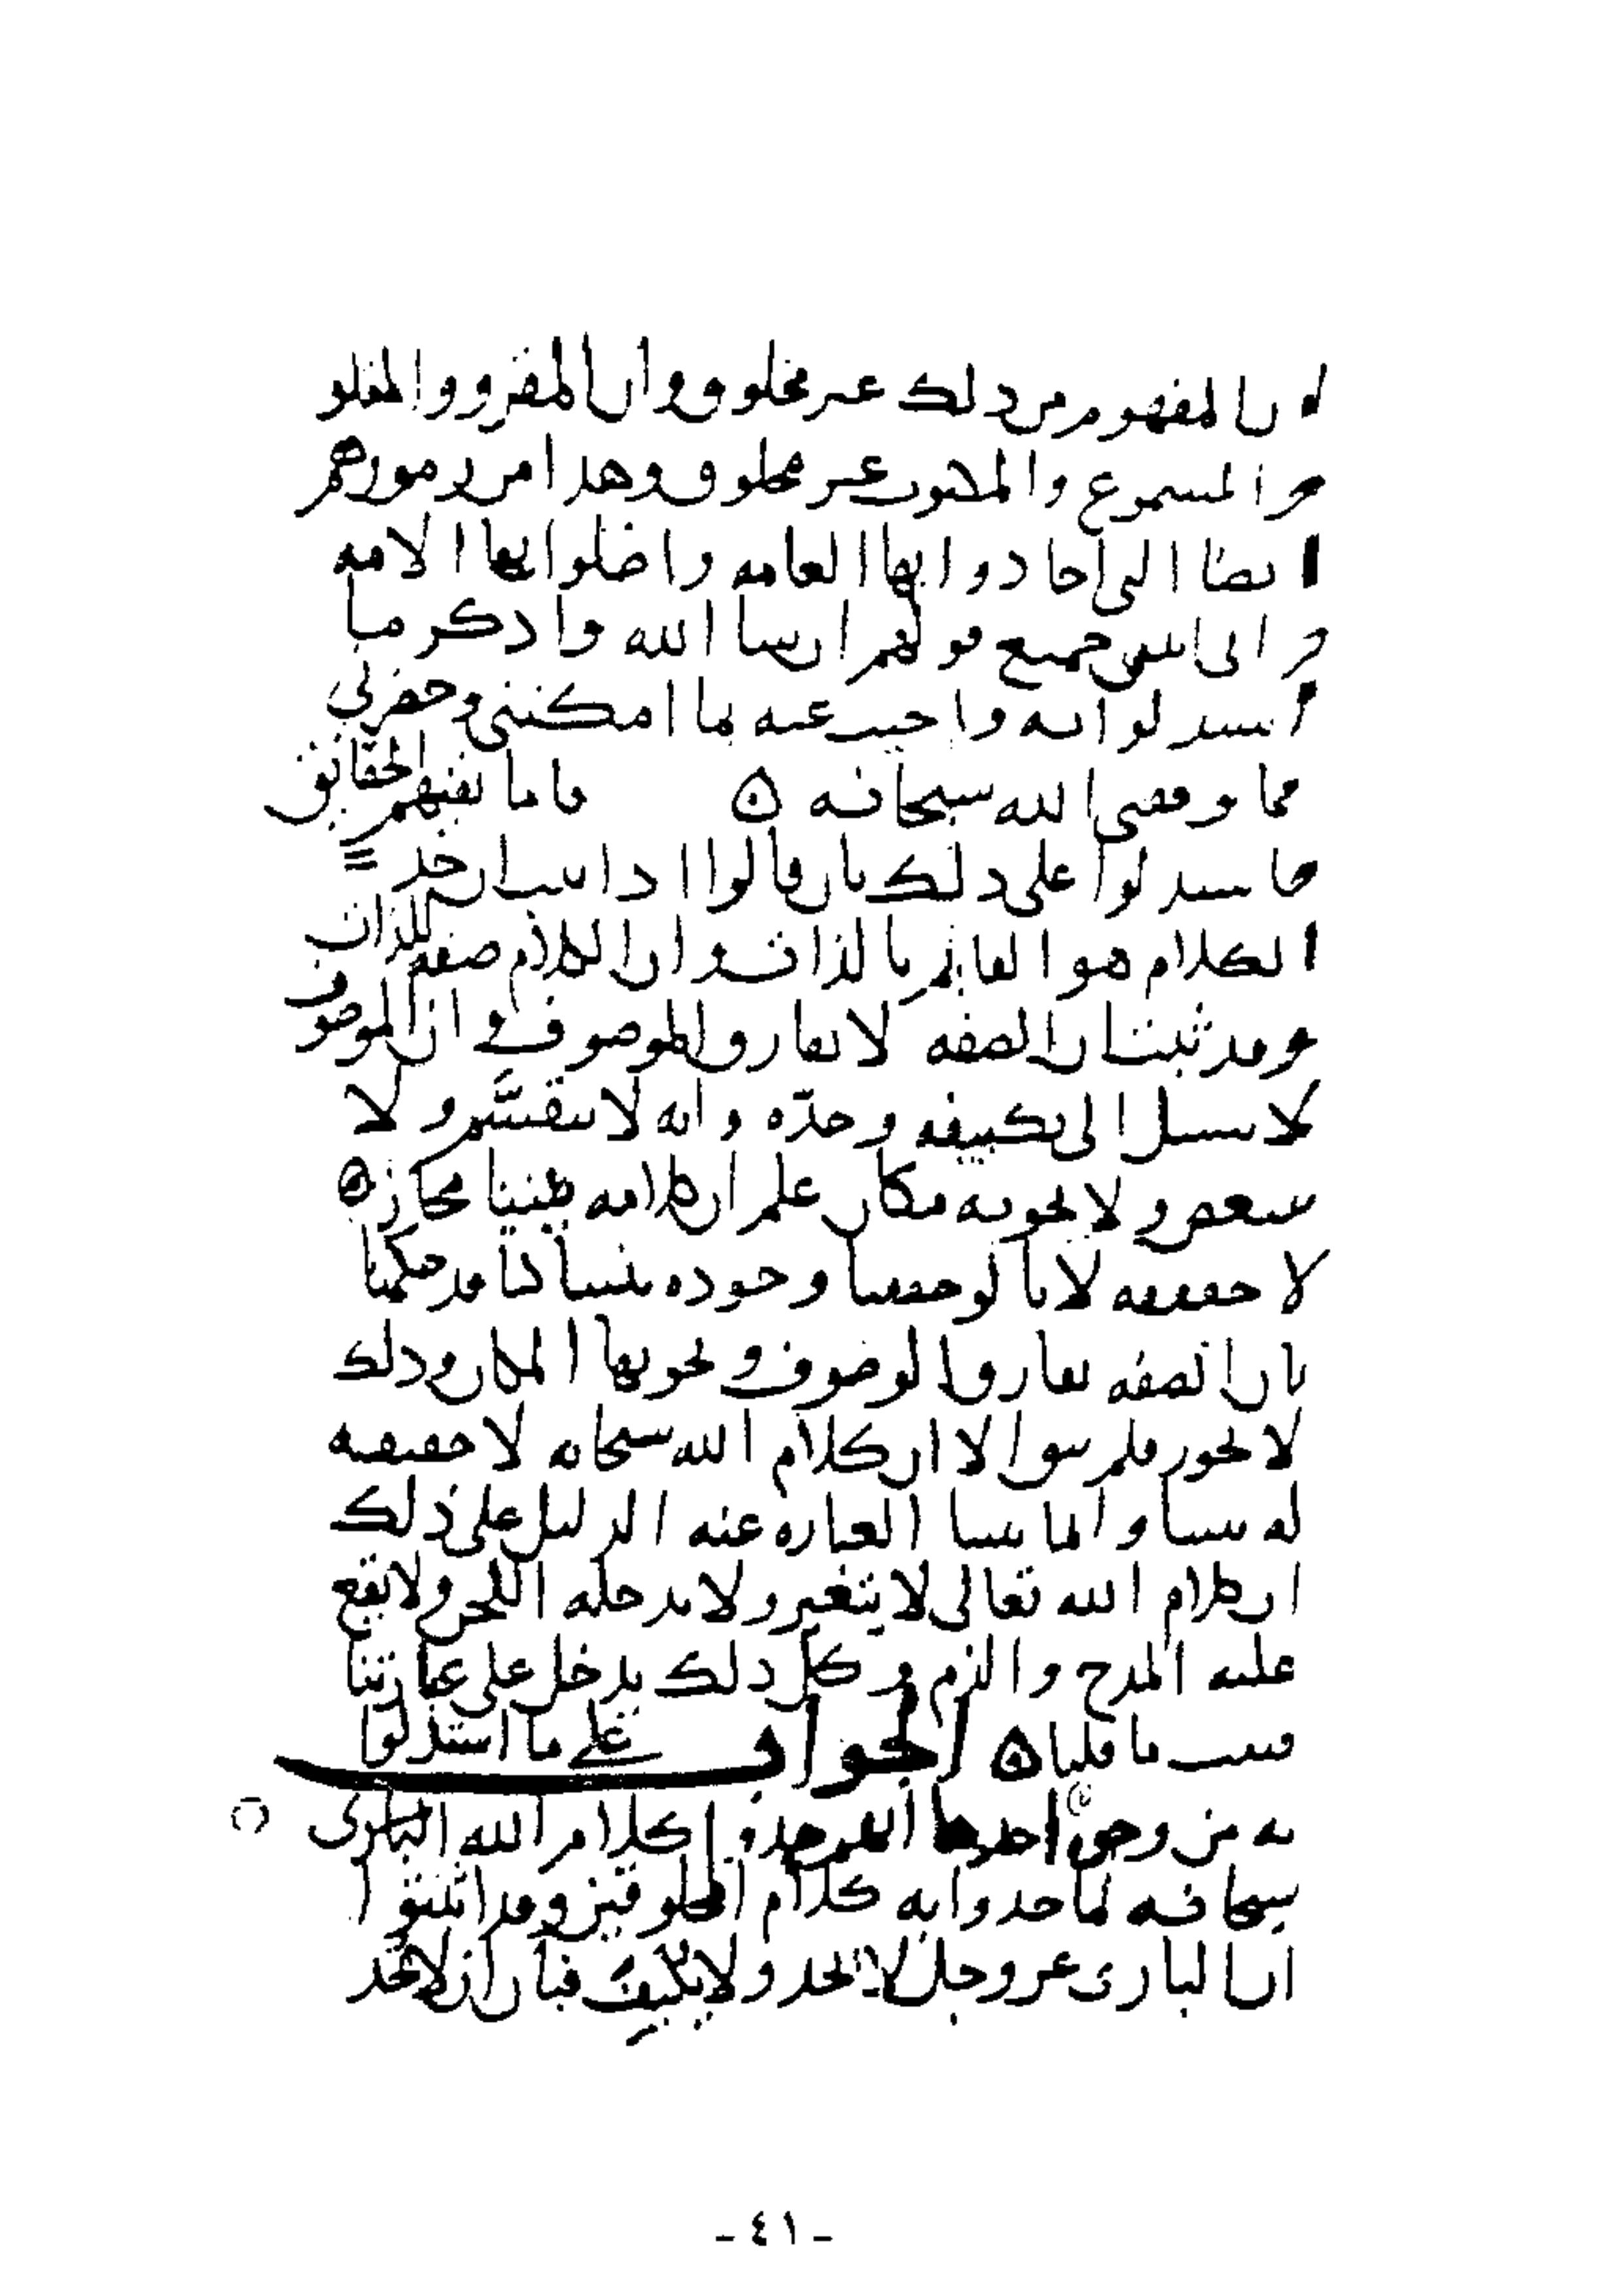 ان المفهوم من ذلك غير مخلوق وان المقرو والمتلو
والمسموع غير مخلوق وهذا من رموزهم
ايضا التي احادوا بها العامه واضلوا بها الامه
واني جميع قولهم ان شا الله واذكر ما
استدلوا به واجيب عنه بما امكنني وحضرني
مما وفقني الله سبحانه ه فاما نفيهم الحقايق
فاستدلوا على ذلك بان قالوا اذا ثبت ان حد
الكلام هو القايم بالذات وان الكلام صفه للذات
وقد ثبت ان الصفه لا تفارق الموصوف وان الموصوف
لا سبيل الى تكييفه وحده وانه لا ينقسم ولا
يتبعض ولا يحويه مكان علم ان كلامه بيننا مجاز ه
لا حقيقه لانا لو حققنا وجوده بيننا لكنا قد حكمنا
بان الصفه تفارق الموصوف ويحويها المكان وذلك
لا يجوز فلم يبق الا ان كلام الله سبحانه لا حقيقه
له بيننا وانما بيننا العباره عنه الدليل على ذلك
ان كلام الله تعالى لا يتغير ولا يدخله اللحن ولا يقع
عليه المدح والذم وكل ذلك يدخل على عبارتنا
فثبت ما قلنا ه الجواب على ما استدلوا
به من وجوه احدها انهم حدوا كلام الله الباري
سبحانه لما حدوا به كلام المخلوقين وقد اثبتوا
ان الباري عز وجل لا يحد ولا يكيف فبان ان لا تحد
- ٤١ -